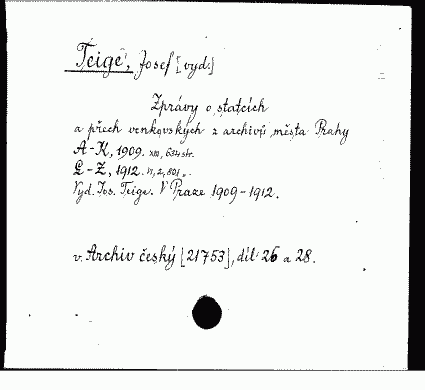 Teige, Josef [vyd.]
Zprávy o statcích
a přech venkovských z archivů města Prahy
A-K, 1909. XIII, 634 str.
L-Ž, 1912. VI, 2, 801 „.
Vyd. Jos. Teige. V Praze 1909-1912.
v. Archiv český [21753], díl 26 a 28.